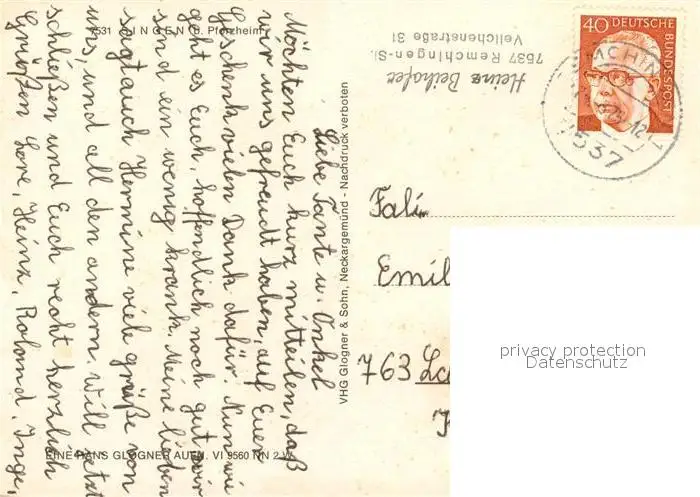 7531 INGEN (b. Pforzheim)
Liebe Tante u. Onkel
Möchten Euch kurz mitteilen, daß
wir uns gefreudt haben, auf Euer
Geschenk vielen Dank dafür. Nun wie
geht es Euch, hoffendlich noch gut, wir
sind ein wenig krank. Meine lieben
sagt auch Hermine viele grüße von
uns, und all den andern. Will jetzt
schließen und Euch recht herzlich
Grüßen Lore, Heinz, Roland, Inge,
EINE HANS GLOGNER AUFN. VI 9560 NN 2 W
VHG Glogner & Sohn, Neckargemünd - Nachdruck verboten
Heinz Beihofer
7537 Remchingen-Si.
Veilchenstraße 31
40 DEUTSCHE BUNDESPOST
MCHIN
7537
Fali.
Emil
763
privacy protection
Datenschutz